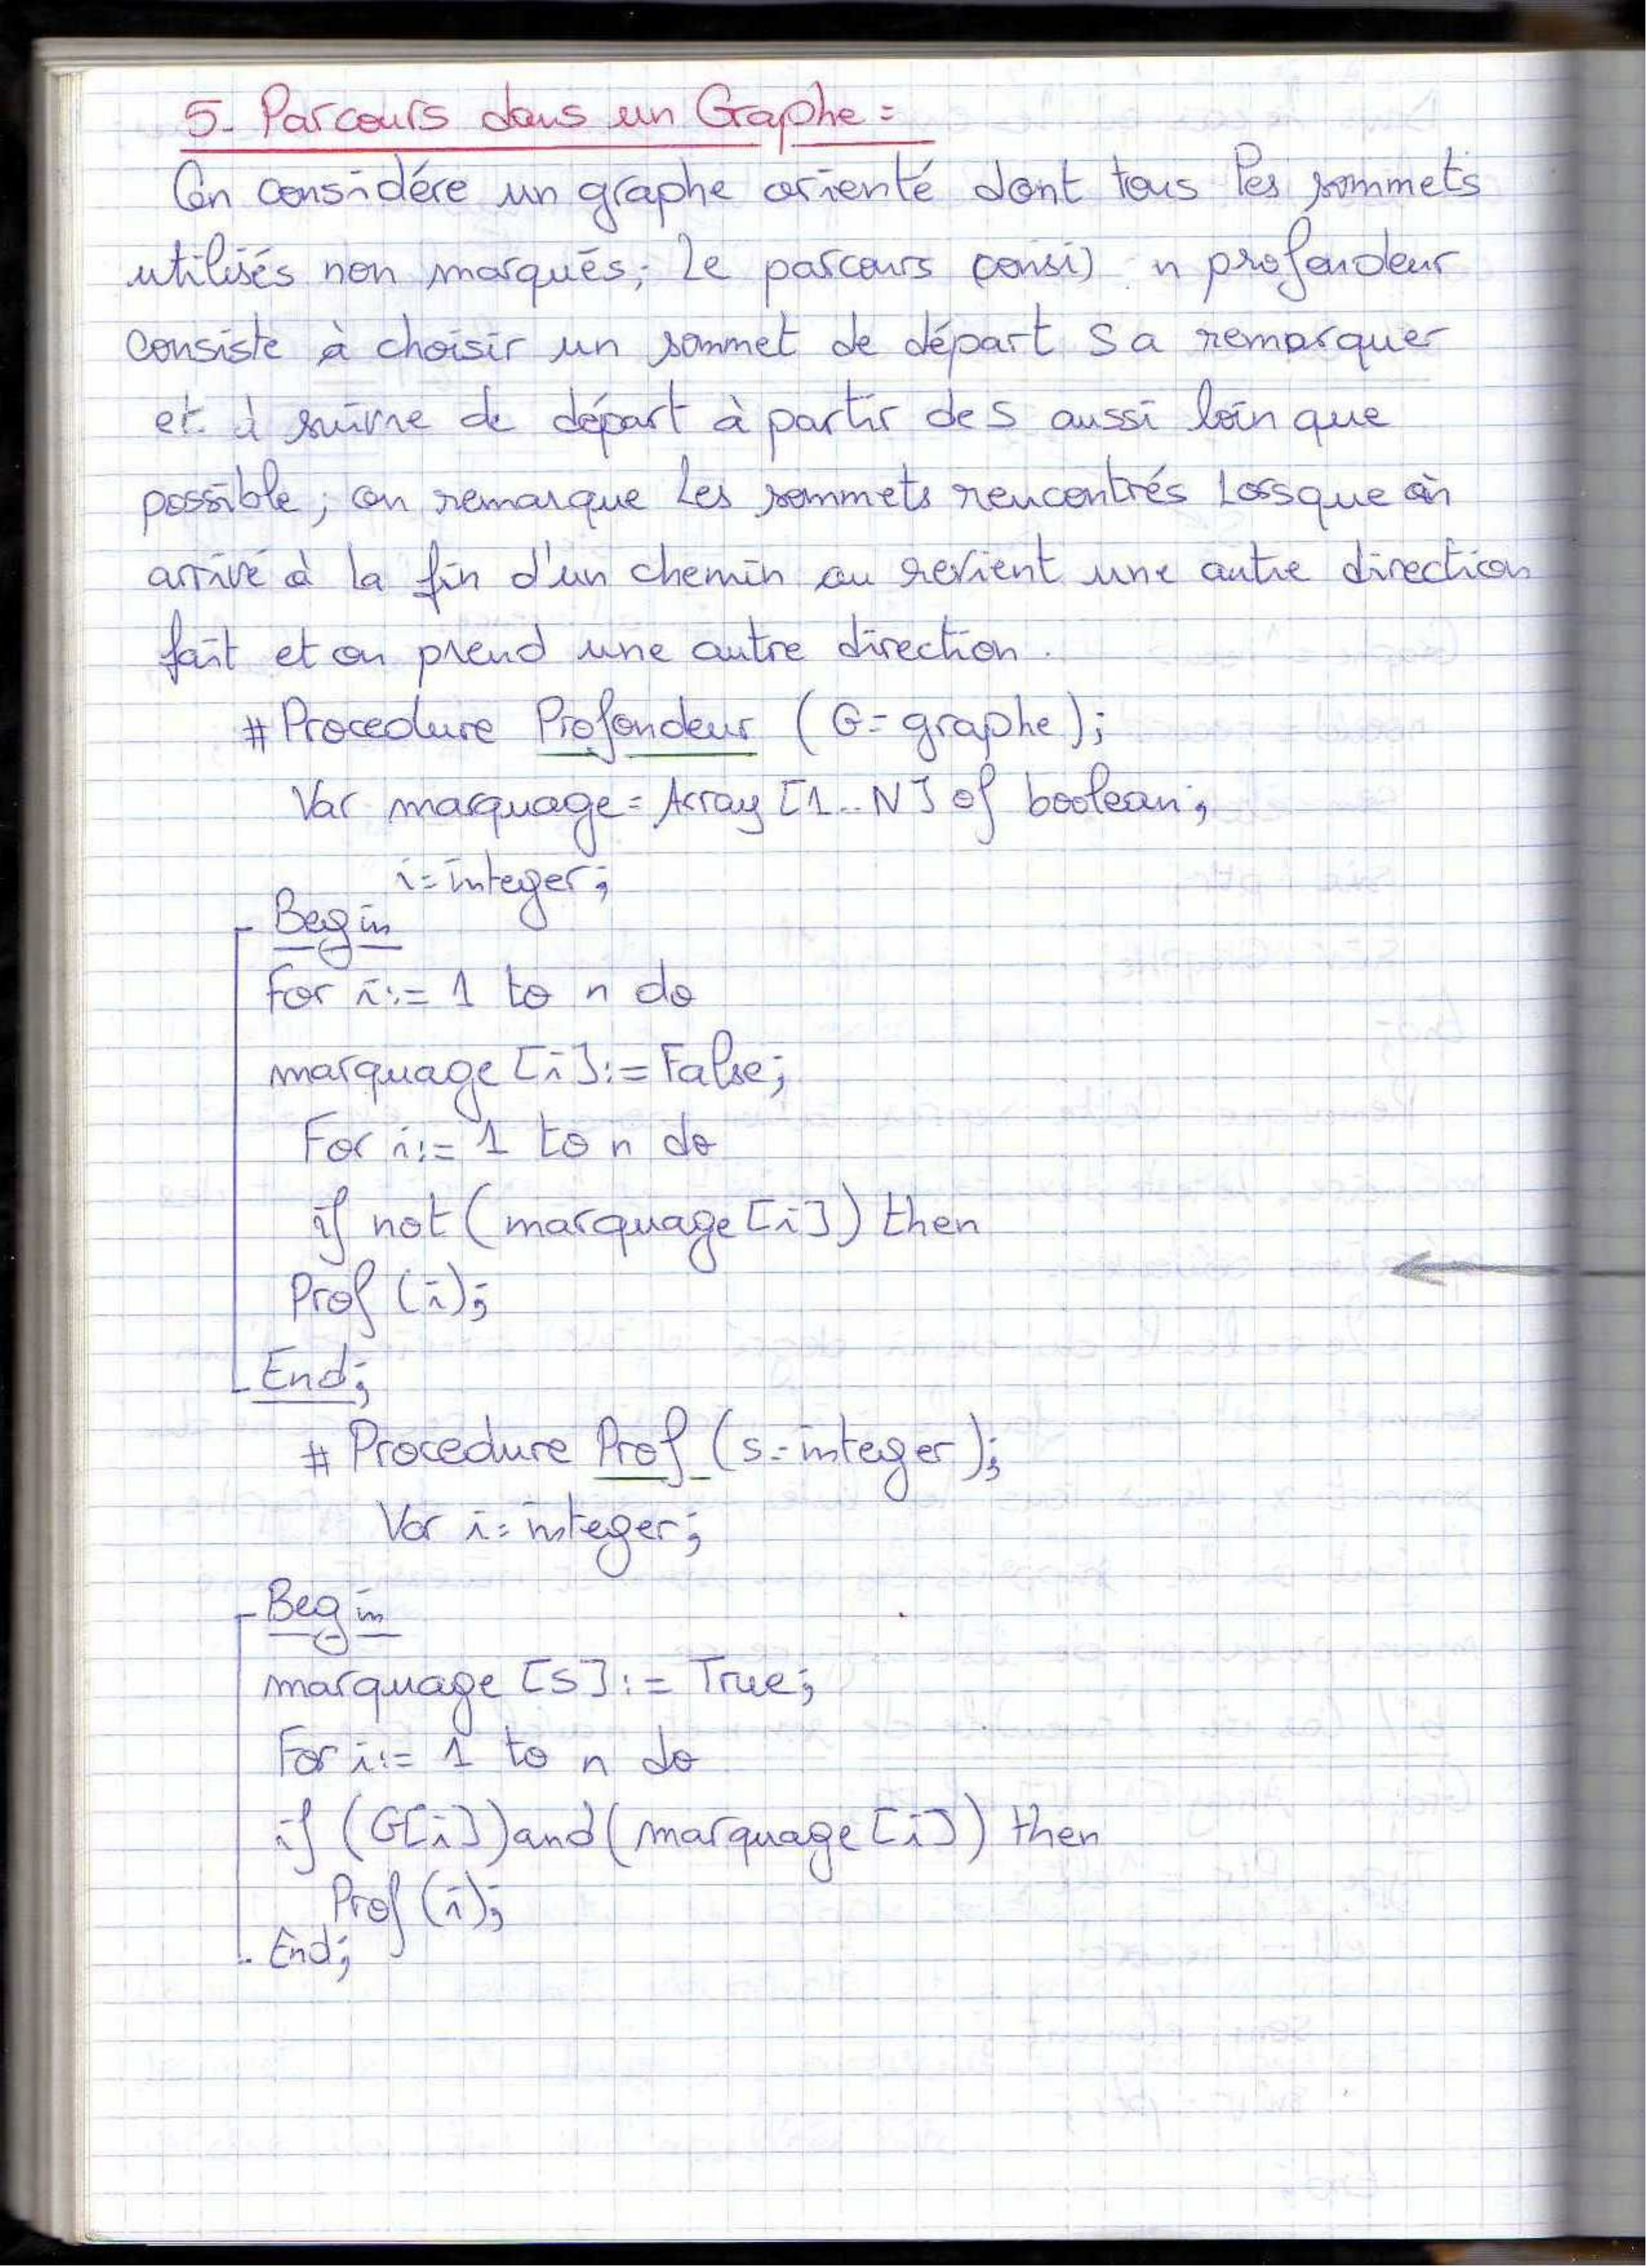 5. Parcours dans un Graphe :
On considére un graphe orienté dont tous les sommets
utilisés non marqués; Le parcours consi) n profondeur
consiste à choisir un sommet de départ S a remarquer
et à suivre de départ à partir de S aussi loin que
possible; on remarque Les sommets rencontrés Lorsque on
arrivé à la fin d'un chemin ou revient une autre direction
fait et on prend une autre direction.
# Procedure Profondeur (G: graphe);
Var marquage: Array [1..N] of boolean;
i: integer;
Begin
For i:= 1 to n do
marquage [i]:= False;
For i:= 1 to n do
if not (marquage [i]) then
Prof (i);
End;
# Procedure Prof (s: integer);
Var i: integer;
Begin
marquage [S]:= True;
For i:= 1 to n do
if (G[i]) and (marquage [i]) then
Prof (i);
End;